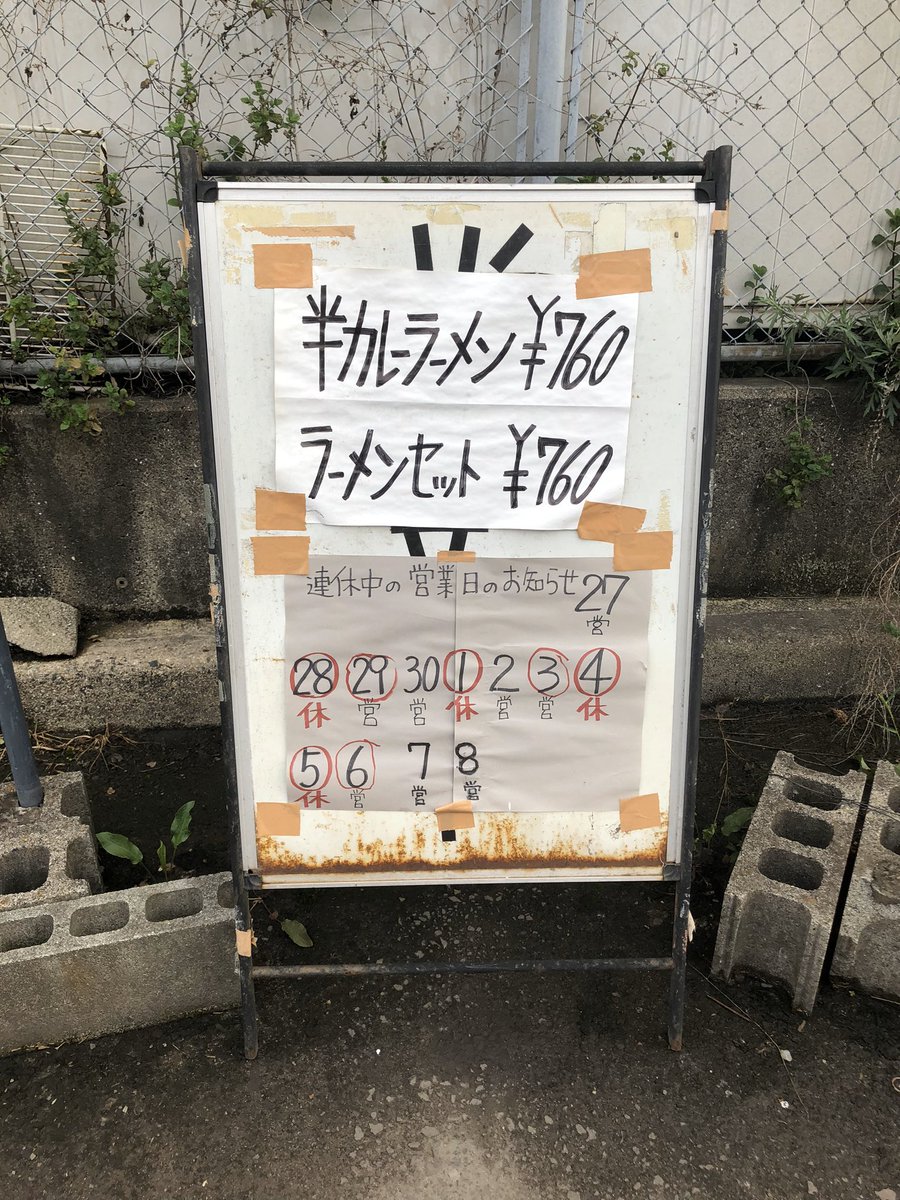 半カレーラーメン ¥760
ラーメンセット ¥760
連休中の営業日のお知らせ 27
営
28 29 30 1 2 3 4
休 営 営 休 営 営 休
5 6 7 8
休 営 営 営